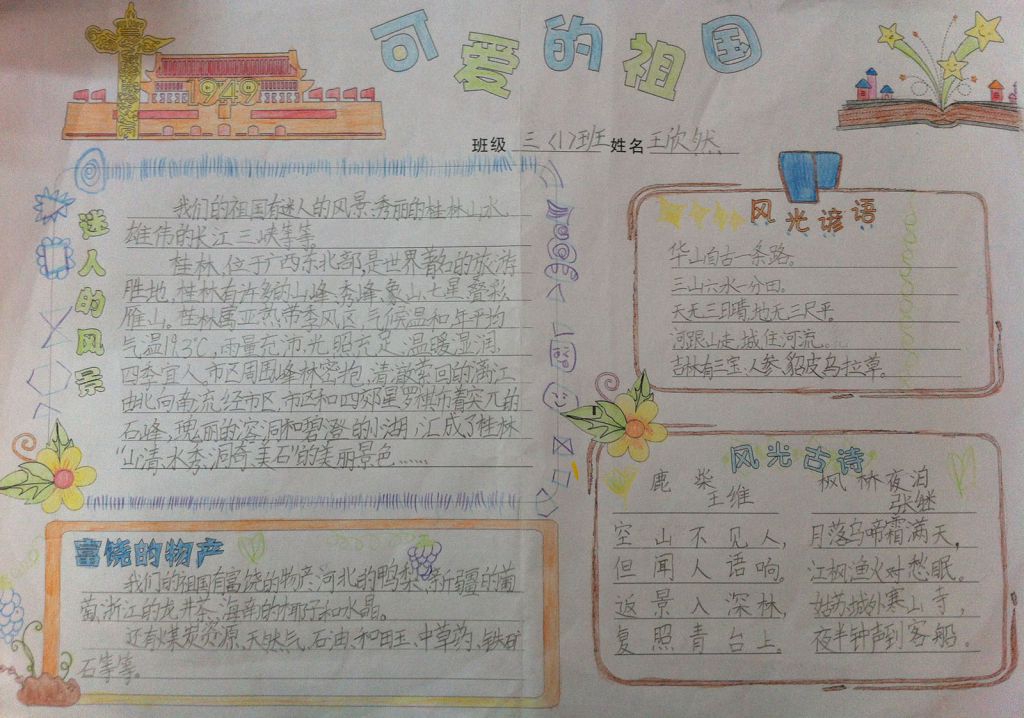 可爱的祖国
1949
班级 三〈1〉班 姓名 王欣然
迷人的风景
我们的祖国有迷人的风景、秀丽的桂林山水、
雄伟的长江三峡等等。
桂林,位于广西东北部,是世界著名的旅游
胜地,桂林有许多的山峰、秀峰、象山、七星、叠彩、
雁山。桂林属亚热带季风区,气候温和,年平均
气温19.3℃,雨量充沛,光照充足,温暖湿润,
四季宜人。市区周围峰林密抱,清澈萦回的漓江
由北向南流经市区,市区和四郊星罗棋布着突兀的
石峰,瑰丽的溶洞和碧澄的小湖,汇成了桂林
“山清、水秀、洞奇、美石”的美丽景色……
富饶的物产
我们的祖国有富饶的物产:河北的鸭梨、新疆的葡
萄、浙江的龙井茶、海南的椰子和水晶。
还有煤炭资原、天然气、石油、和田玉、中草药、铁矿
石等等。
风光谚语
华山自古一条路。
三山六水一分田。
天无三日晴,地无三尺平。
河跟山走,城住河流。
吉林有三宝:人参、貂皮、乌拉草。
风光古诗
鹿 柴
王维
空山不见人,
但闻人语响。
返景入深林,
复照青台上。
枫林夜泊
张继
月落乌啼霜满天,
江枫渔火对愁眠。
姑苏城外寒山寺,
夜半钟声到客船。